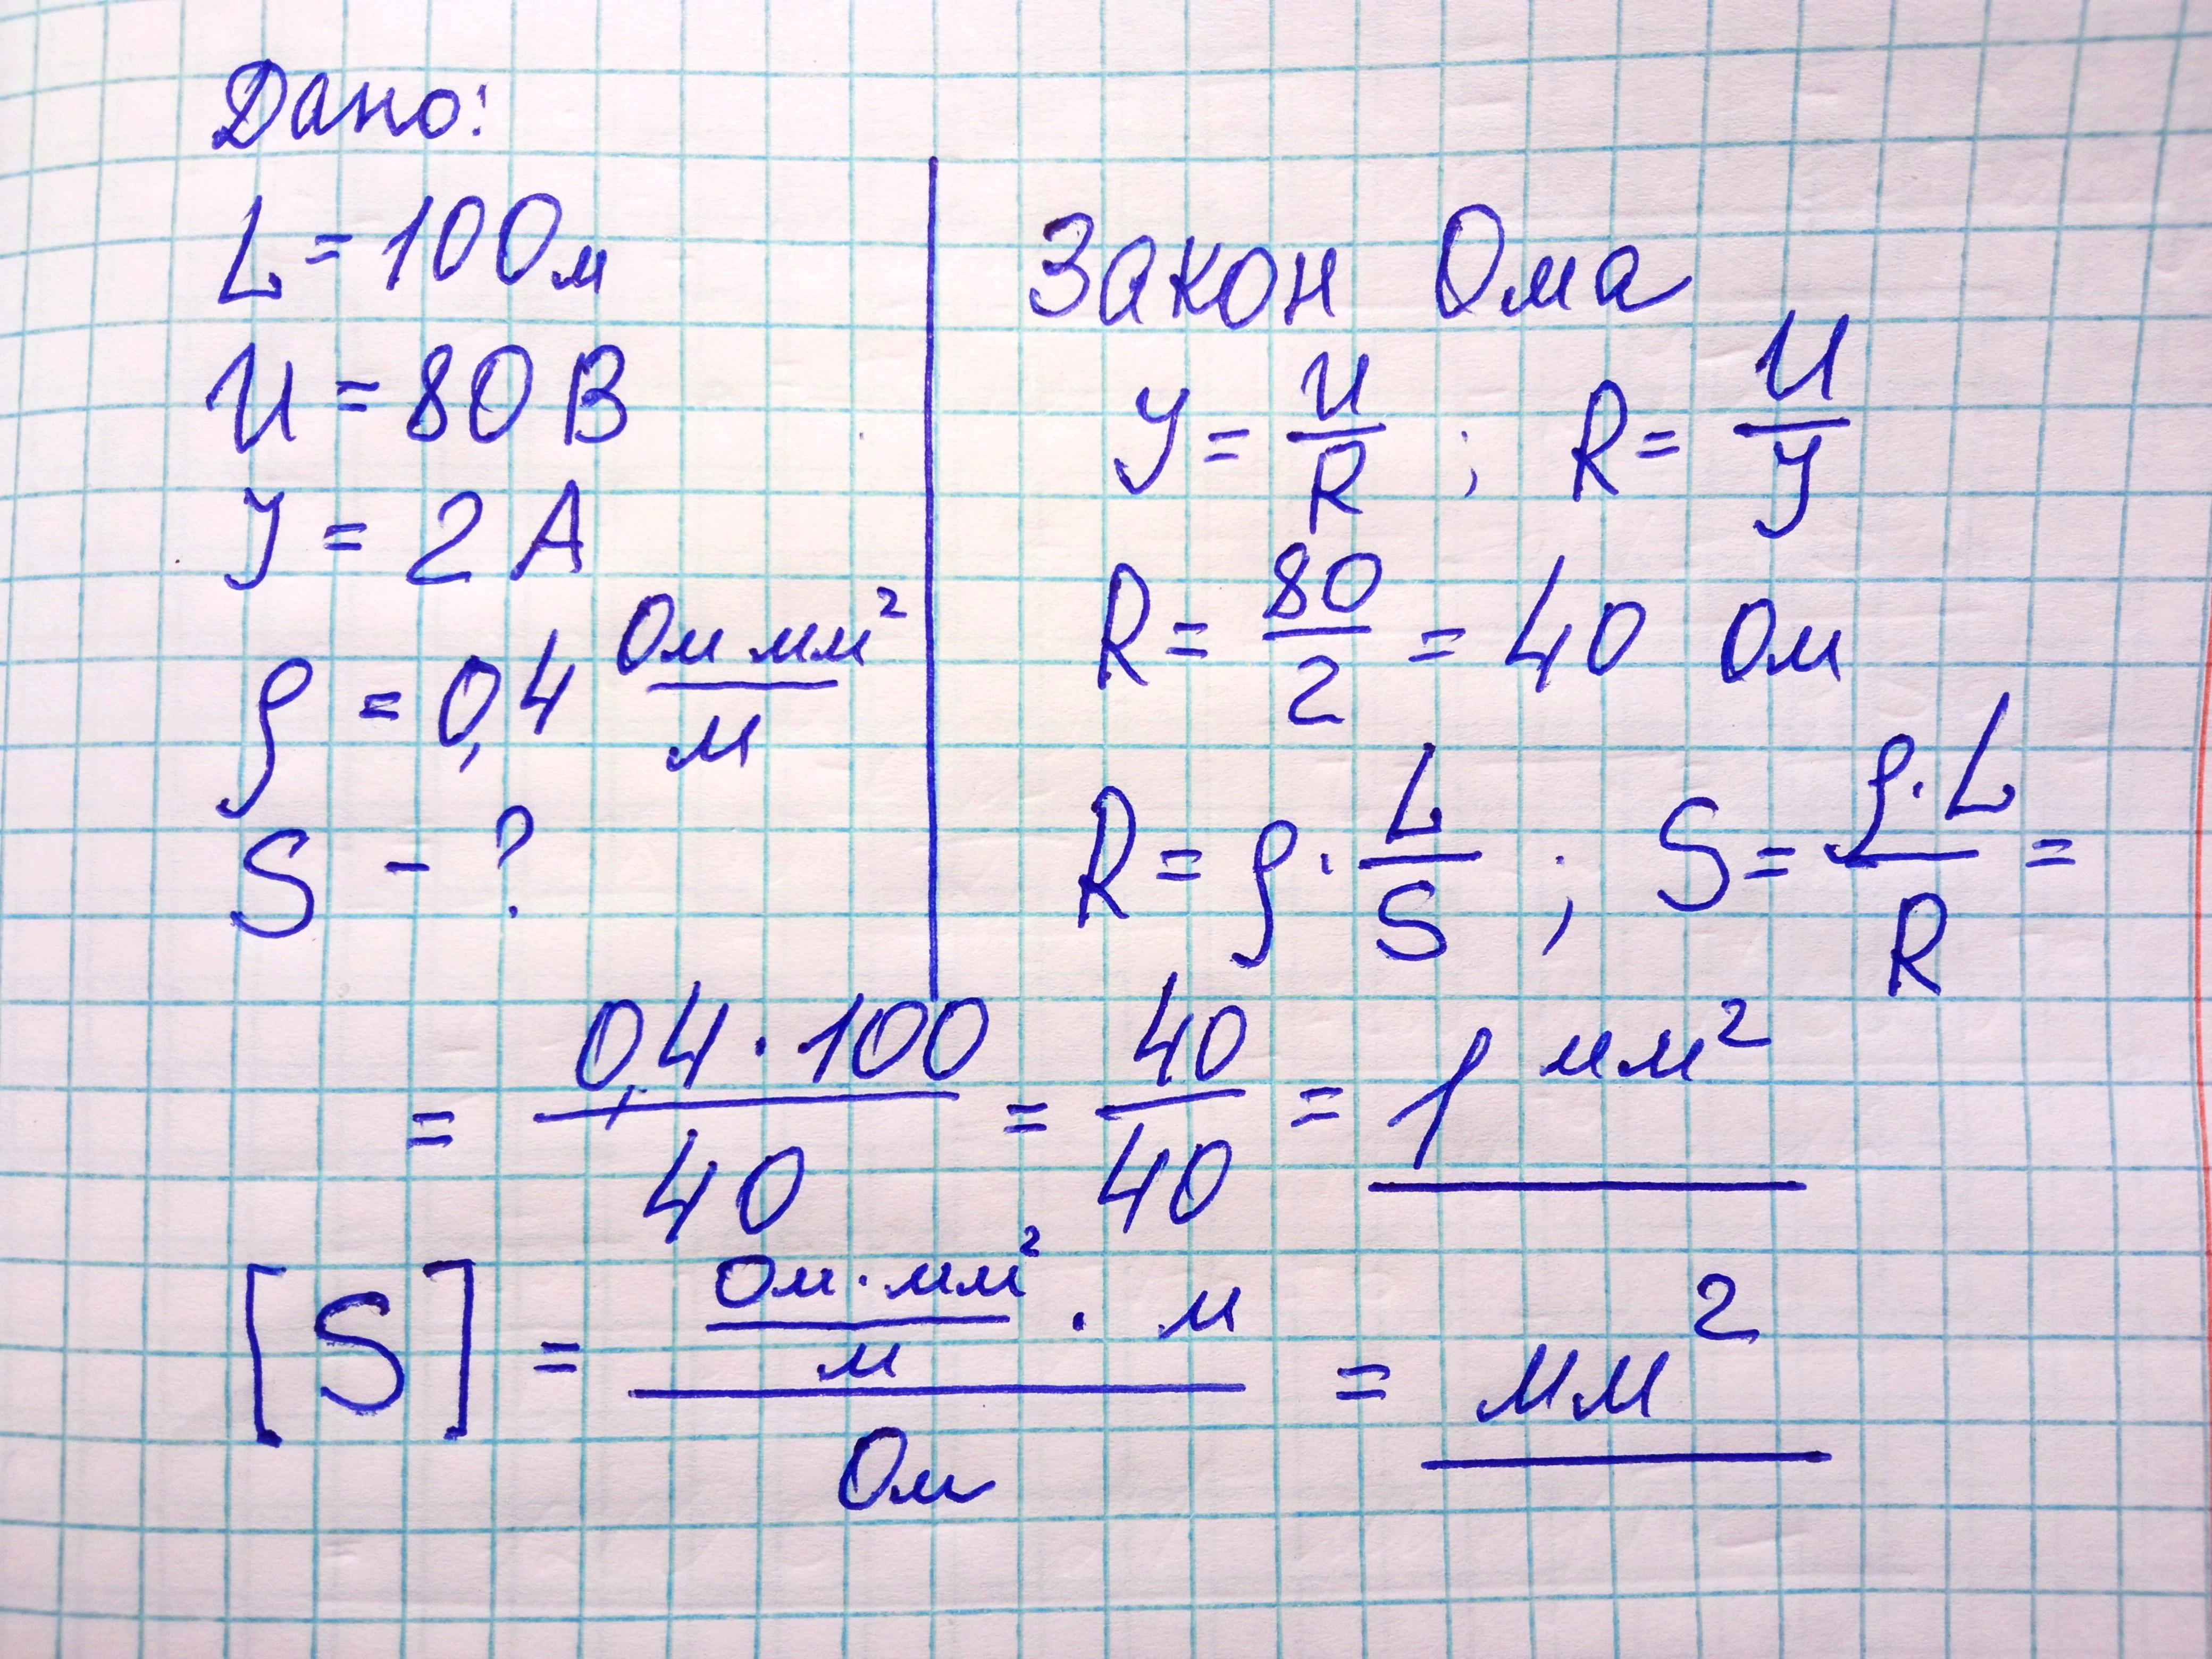 Дано:
L = 100м
U = 80 В
J = 2 А
ρ = 0,4 Ом мм²/м
S - ?
Закон Ома
J = U/R ; R = U/J
R = 80/2 = 40 Ом
R = ρ · L/S ; S = ρ·L/R =
= 0,4 · 100/40 = 40/40 = 1 мм²
[S] = Ом·мм²/м · м/Ом = мм²